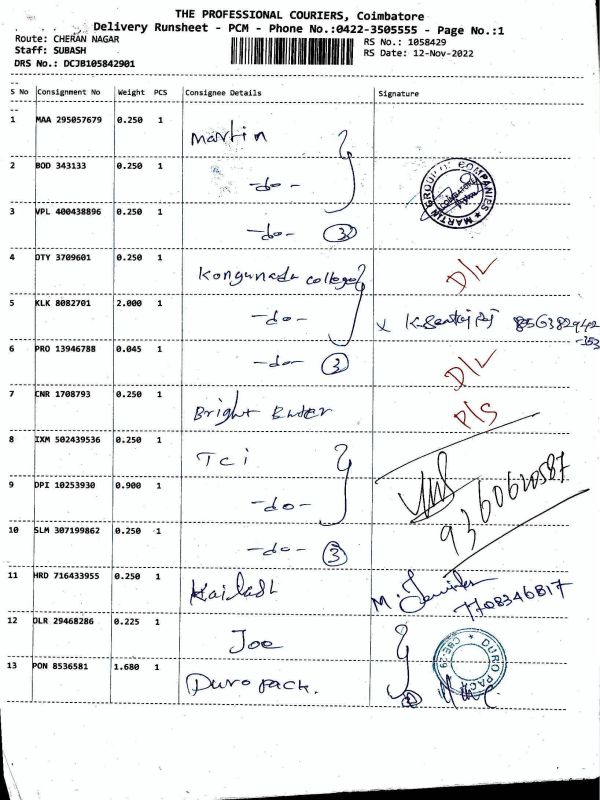 THE PROFESSIONAL COURIERS, Coimbatore
Delivery Runsheet - PCM - Phone No.:0422-3505555 - Page No.:1
Route: CHERAN NAGAR
RS No.: 1058429
Staff: SUBASH
RS Date: 12-Nov-2022
DRS No.: DCJB105842901
S No Consignment No Weight PCS Consignee Details Signature
1 MAA 295057679 0.250 1
Martin
2 BOD 343133 0.250 1
-do-
MARTIN GROUP OF COMPANIES
COIMBATORE
3 VPL 400438896 0.250 1
-do- 3
4 OTY 3709601 0.250 1
Kongunadu college D/L
5 KLK 8082701 2.000 1
-do- X
6 PRO 13946788 0.045 1
-do- 3 D/L
7 CNR 1708793 0.250 1
Bright P/S
8 IXM 502439536 0.250 1
Tci
9 DPI 10253930 0.900 1
-do- 9360620587
10 SLM 307199862 0.250 1
-do- 3
11 HRD 716433955 0.250 1
Kailash M.
7708346817
12 DLR 29468286 0.225 1
Joe
13 PON 8536581 1.680 1
Duropack.
DURO PACK
CBE-29